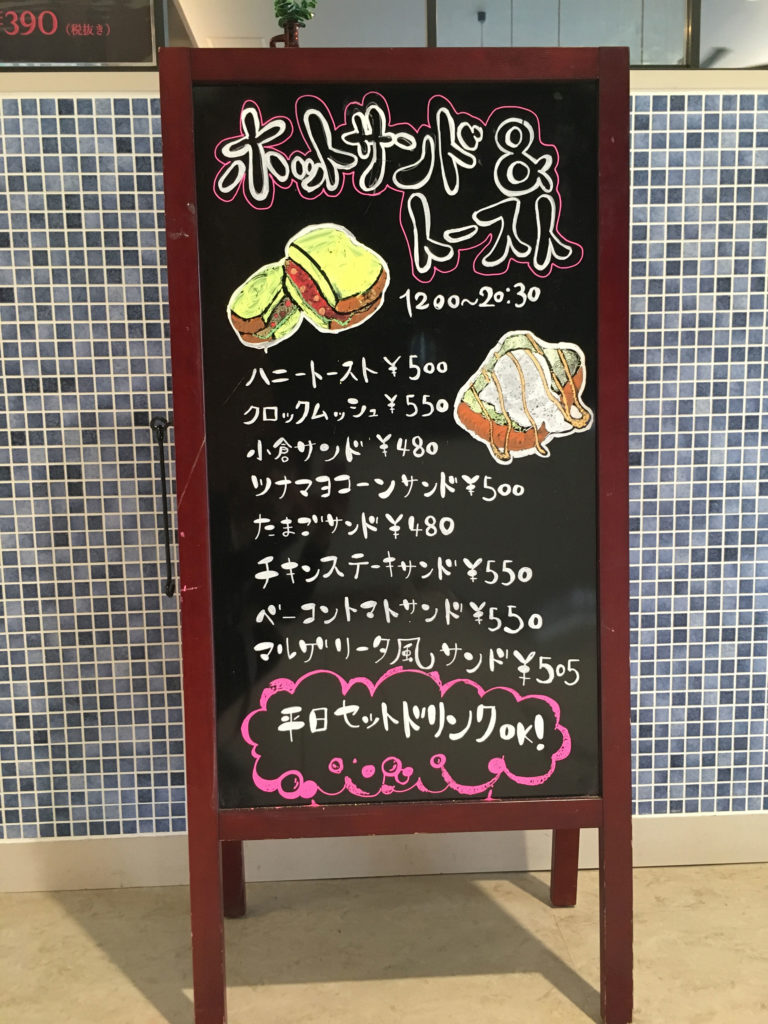 ¥390（税抜き）
ホットサンド&
トースト
12:00~20:30
ハニートースト¥500
クロックムッシュ¥550
小倉サンド ¥480
ツナマヨコーンサンド¥500
たまごサンド¥480
チキンステーキサンド¥550
ベーコントマトサンド¥550
マルゲリータ風サンド¥505
平日セットドリンクOK!